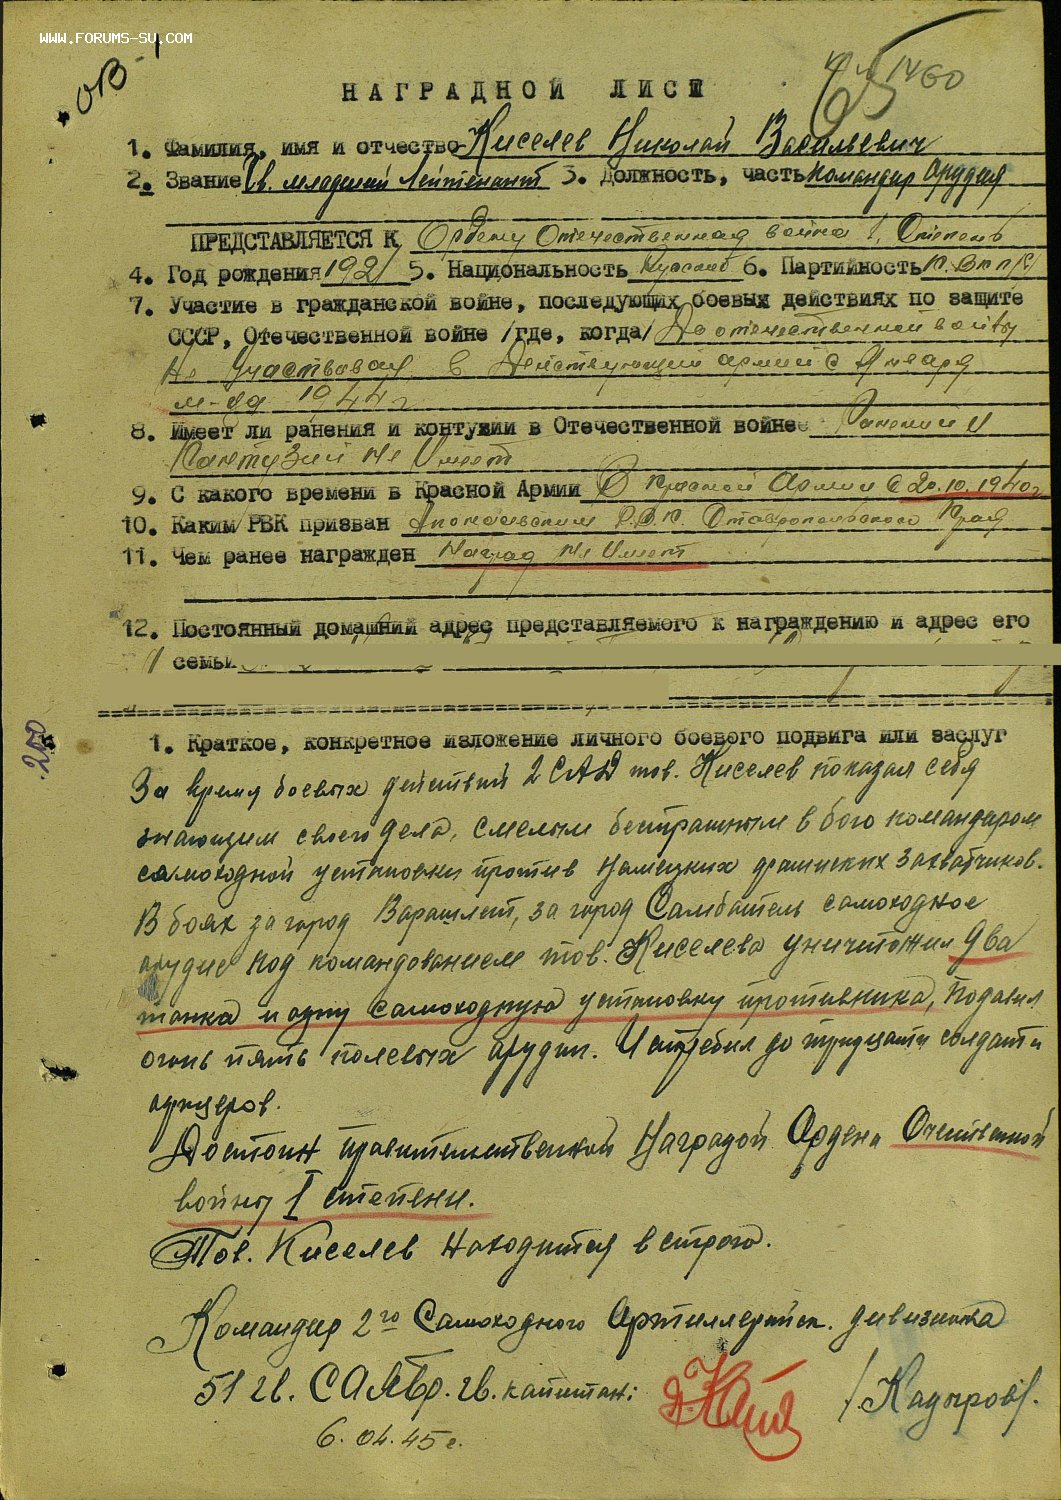 WWW.FORUMS-SU.COM
ОВ-1
НАГРАДНОЙ ЛИСТ
1. Фамилия, имя и отчество Киселев Николай Васильевич
2. Звание Гв. младший Лейтенант 3. Должность, часть Командир Орудия
ПРЕДСТАВЛЯЕТСЯ К Ордену Отечественная война 1 Степень
4. Год рождения 1921 5. Национальность Русский 6. Партийность К. ВКП/б/
7. Участие в гражданской войне, последующих боевых действиях по защите
СССР, Отечественной войне /где, когда/ До отечественной войны
Не Участвовал, в Действующей армии с Января
м-ца 1944 г
8. Имеет ли ранения и контузии в Отечественной войне Ранений и
Контузий не Имеет
9. С какого времени в Красной Армии В Красной Армии с 20.10.1940г
10. Каким РВК призван Р.В.К. Ставропольского Края
11. Чем ранее награжден Наград не Имеет
12. Постоянный домашний адрес представляемого к награждению и адрес его
семьи
250
1. Краткое, конкретное изложение личного боевого подвига или заслуг
За время боевых действий 2 САД тов. Киселев показал себя
знающим своего дела, смелым бесстрашным в бою командиром
самоходной установки против немецких захватчиков.
В боях за город за город самоходное
орудие под командованием тов. Киселева уничтожил два
танка и одну самоходную установку противника, подавил
огонь пять полевых орудий. Истребил до тридцати солдат и
офицеров.
Достоин правительственной Наградой Ордена Отечественной
войны I степени.
Тов. Киселев находится в строю.
Командир 2го Самоходного Артиллерийск. дивизиона
51 гв. САПБр. гв. капитан: /Кадыров/.
6.04.45г.